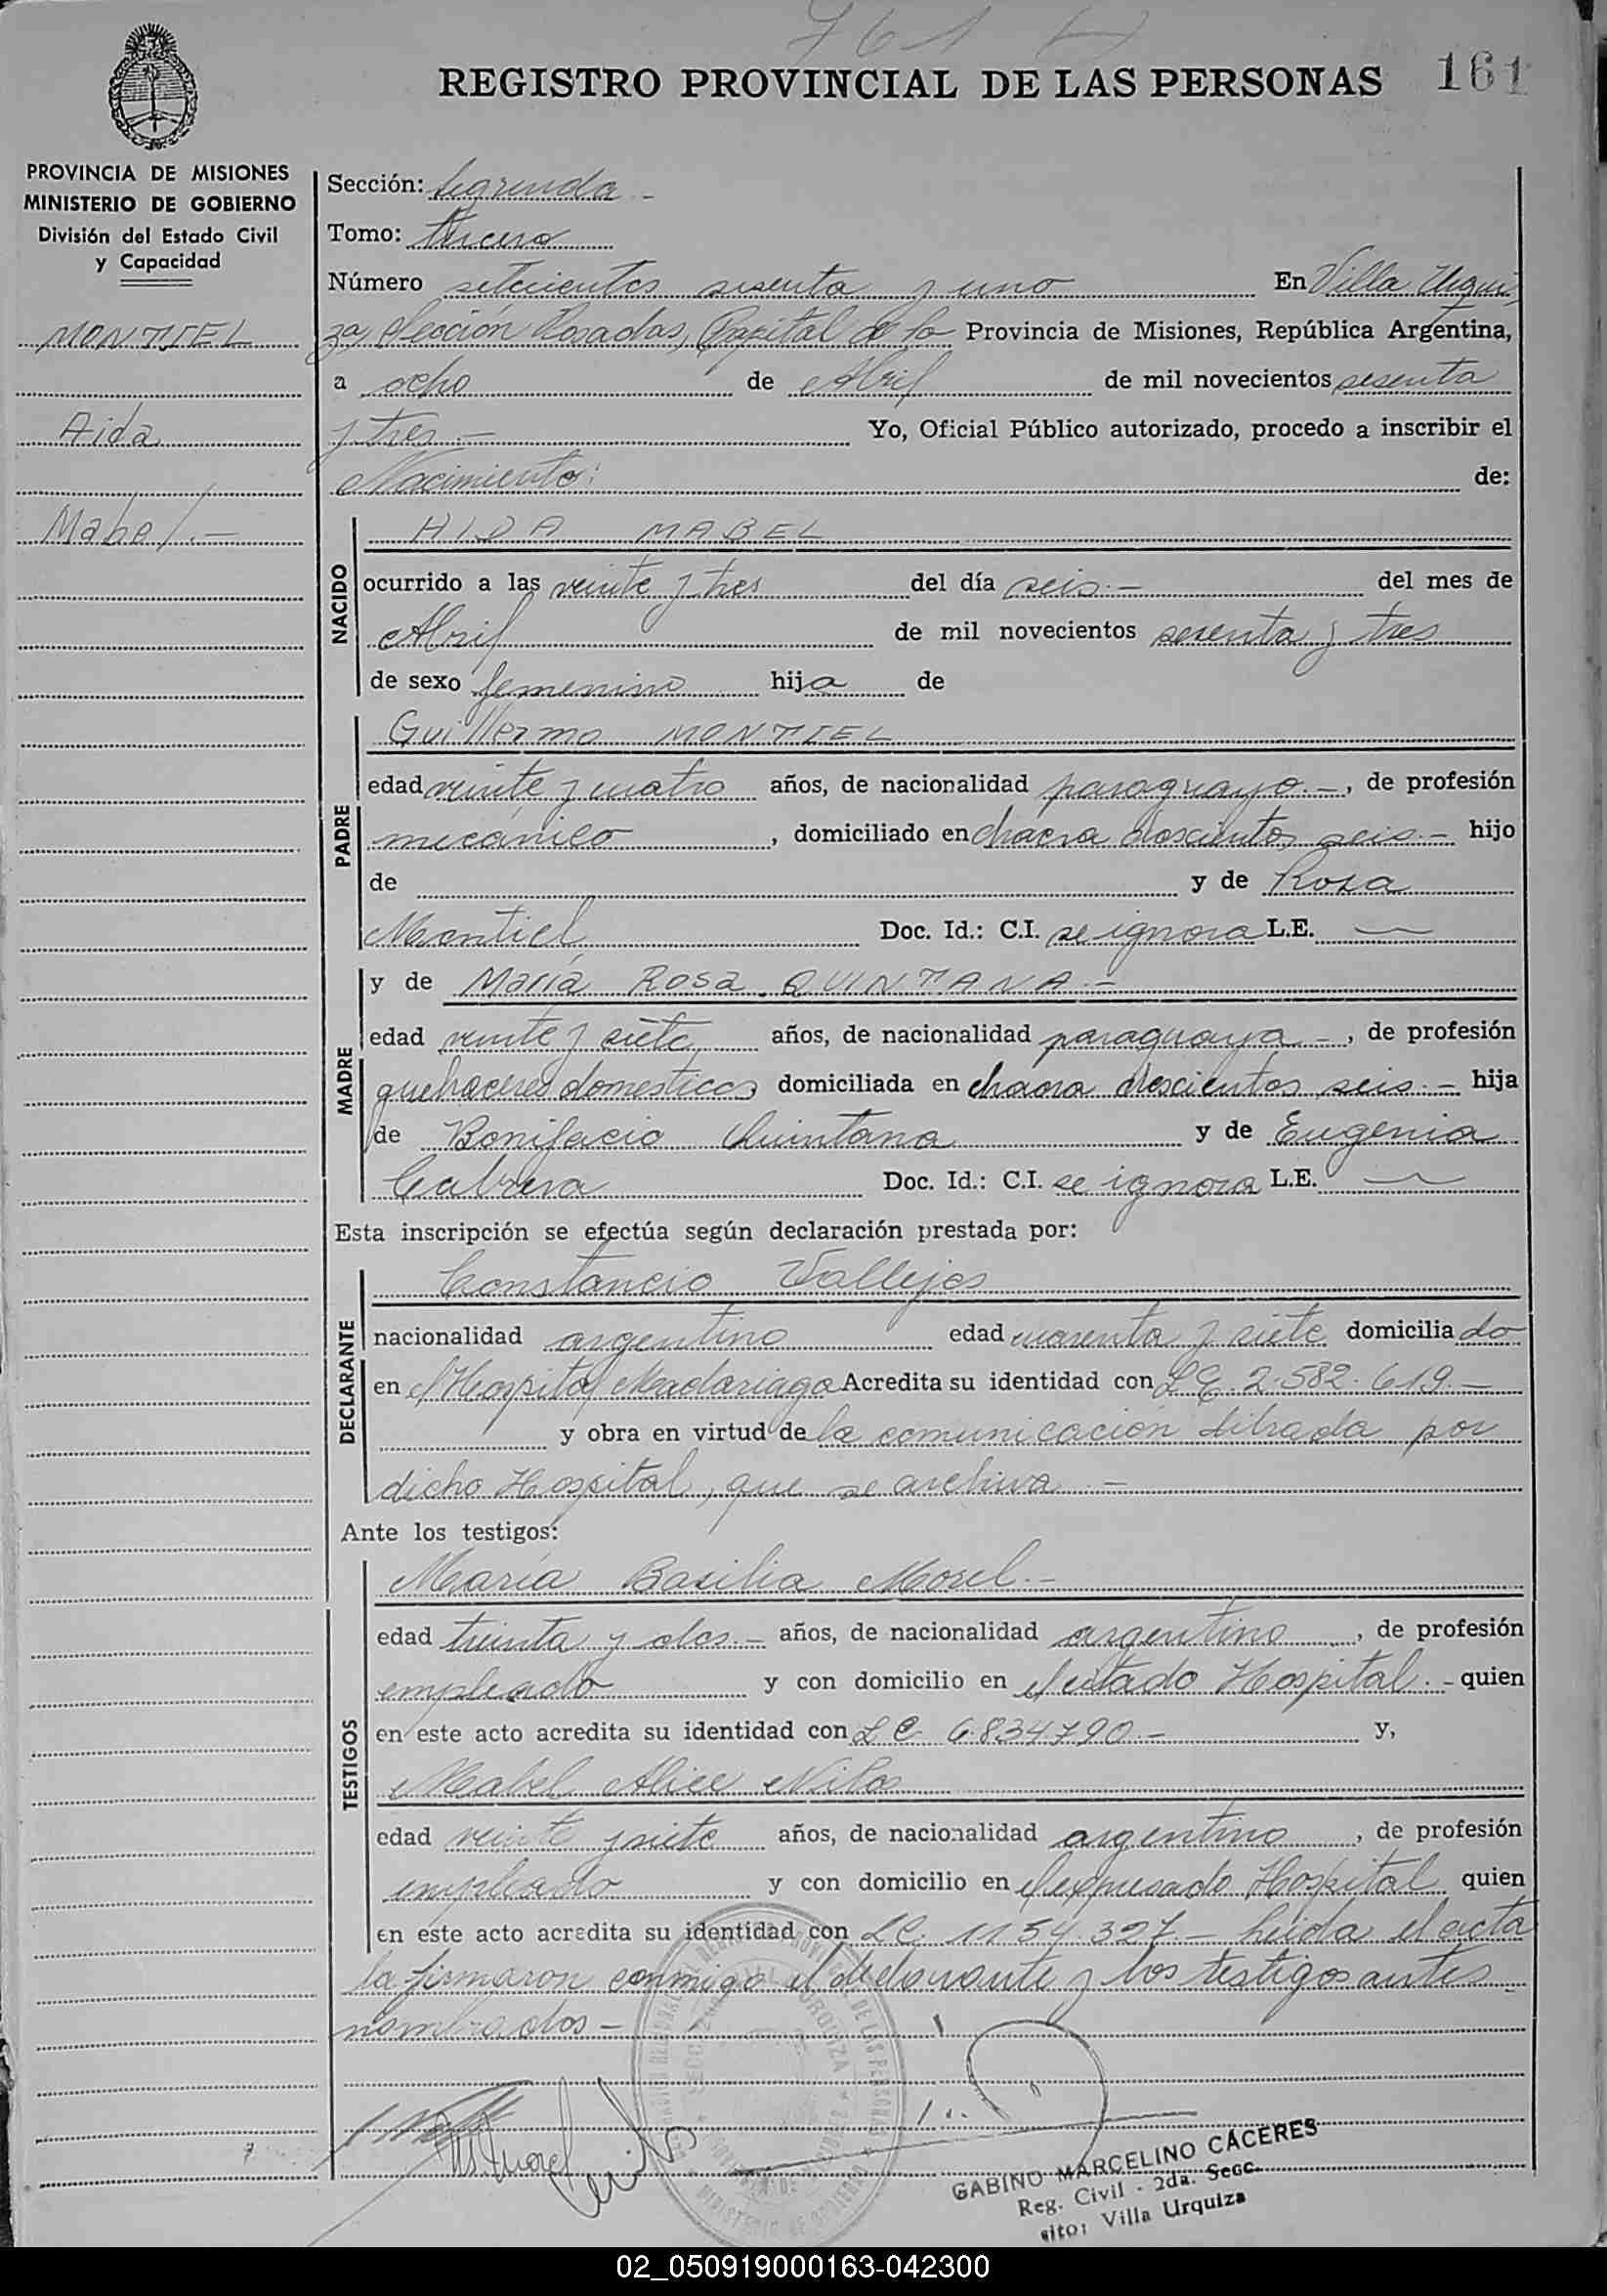 761
REGISTRO PROVINCIAL DE LAS PERSONAS 161
PROVINCIA DE MISIONES
MINISTERIO DE GOBIERNO
División del Estado Civil
y Capacidad
MONTIEL
Aida
Mabel.-
Sección: Segunda -
Tomo: tercero
Número setecientos sesenta y uno En Villa Urqui
za, Sección Posadas, Capital de la Provincia de Misiones, República Argentina,
a ocho de Abril de mil novecientos sesenta
y tres.- Yo, Oficial Público autorizado, procedo a inscribir el
Nacimiento: de:
NACIDO
AIDA MABEL
ocurrido a las veinte y tres del día seis.- del mes de
Abril de mil novecientos sesenta y tres
de sexo femenino hija de
PADRE
Guillermo MONTIEL
edad veinte y cuatro años, de nacionalidad paraguayo.-, de profesión
mecánico, domiciliado en chacra doscientos seis.- hijo
de y de Rosa
Montiel Doc. Id.: C.I. se ignora L.E. —
MADRE
y de María Rosa QUINTANA.-
edad veinte y siete años, de nacionalidad paraguaya -, de profesión
quehaceres domesticos, domiciliada en chacra doscientos seis.- hija
de Bonifacio Quintana y de Eugenia
Cabrera Doc. Id.: C.I. se ignora L.E. —
Esta inscripción se efectúa según declaración prestada por:
DECLARANTE
Constancio Vallejos
nacionalidad argentino edad cuarenta y siete domiciliado
en el Hospital Madariaga Acredita su identidad con L E 2.582.619.-
y obra en virtud de la comunicación librada por
dicho Hospital, que se archiva.-
Ante los testigos:
TESTIGOS
María Basilia Morel.-
edad treinta y dos.- años, de nacionalidad argentino, de profesión
empleado y con domicilio en el citado Hospital.- quien
en este acto acredita su identidad con L C 6.834.790.- y,
Mabel Alice
edad veinte y siete años, de nacionalidad argentino, de profesión
empleado y con domicilio en el expresado Hospital quien
en este acto acredita su identidad con L C. 1154.327 - leída el acta
la firmaron conmigo el declarante y los testigos antes
nombrados -
GABINO MARCELINO CACERES
Reg. Civil - 2da. Secc.
sito: Villa Urquiza
02_050919000163-042300